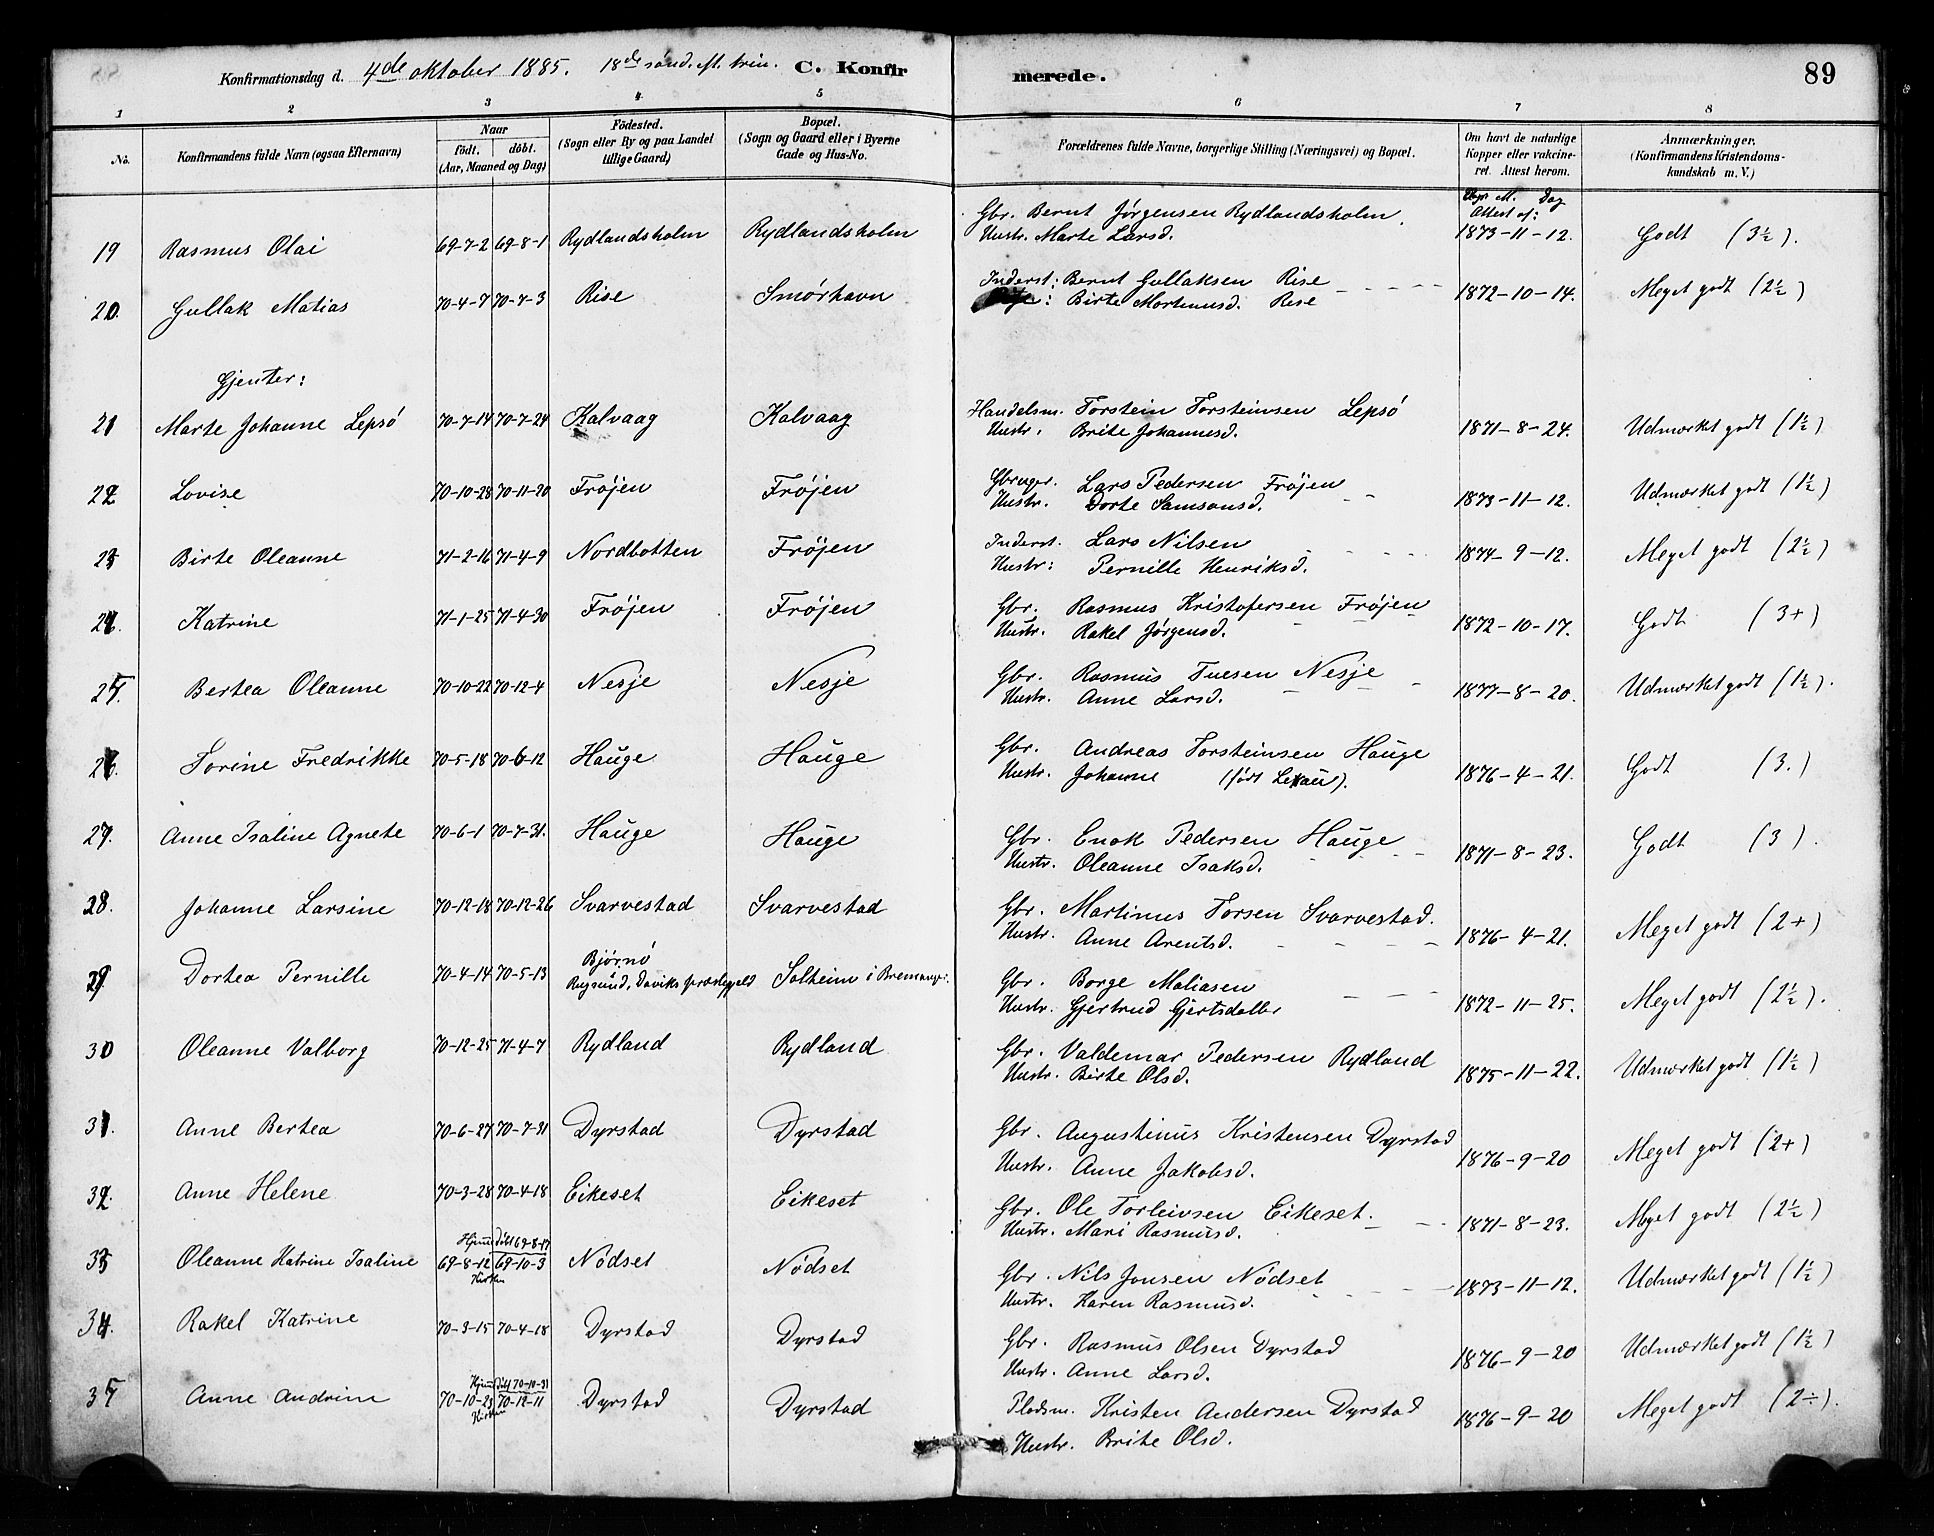 Konfirmationsdag d. 4de oktober 1885. 18de sönd. ef. trin. C. Konfirmerede. 89
1 2 3 4 5 6 7 8
No. Konfirmandens fulde Navn (ogsaa Efternavn) Naar födt. döbt. (Aar, Maaned og Dag) Födested. (Sogn eller By og paa Landet tillige Gaard) Bopæl. (Sogn og Gaard eller i Byerne Gade og Hus-No. Forældrenes fulde Navne, borgerlige Stilling (Næringsvei) og Bopæl. Om havt de naturlige Kopper eller vakcineret. Attest herom. Anmærkninger. (Konfirmandens Kristendomskundskab m. V.)
M. Dag
Attest af:
19 Rasmus Olai 69-7-2 69-8-1 Rydlandsholm Rydlandsholm Gbr. Bernt Jørgensen Rydlandsholm 1873-11-12. Godt (3½).
Hustr. Marte Larsd.
20. Gullak Matias 70-4-7 70-7-3 Rise Smørhavn Inderst: Bernt Gullaksen Rise 1872-10-14. Meget godt (2½)
Birte Mortinusd. Rise
Gjenter:
21 Marte Johanne Lepsö 70-7-14 70-7-24 Kalvaag Kalvaag Handelsm. Torstein Torsteinsen Lepsö 1871-8-24. Udmærket godt (1½)
Hustr. Brite Johannesd.
22 Lovise 70-10-28 70-11-20 Frøjen Frøjen Gbruger. Lars Pedersen Frøjen 1873-11-12. Udmærket godt (1½)
Hustr. Dorte Samsonsd.
23 Birte Oleanne 71-2-16 71-4-9 Nordbotten Frøjen Inderst. Lars Nilsen 1874-9-12. Meget godt (2½)
Hustr: Pernille Henriksd.
24. Katrine 71-1-25 71-4-30 Frøjen Frøjen Gbr. Rasmus Kristofersen Frøjen 1872-10-17. Godt (3+)
Hustr. Rakel Jørgensd.
25. Bertea Oleanne 70-10-22 70-12-4 Nesje Nesje Gbr. Rasmus Tuesen Nesje 1877-8-20. Udmærket godt (1½).
Hustr. Anne Larsd.
26. Torine Fredrikke 70-5-18 70-6-12 Hauge Hauge Gbr. Andreas Torsteinsen Hauge 1876-4-21. Godt (3.)
Hustr. Johanne (født Lexau).
27. Anne Isaline Agnete 70-6-1 70-7-31. Hauge Hauge Gbr. Enok Pedersen Hauge 1871-8-23. Godt (3).
Hustr. Oleanne Isaksd.
28. Johanne Larsine 70-12-18 70-12-26 Svarvestad Svarvestad Gbr. Martinus Torsen Svarvestad. 1876-4-21. Meget godt (2+)
Hustr. Anne Arentsd.
29. Dortea Pernille 70-4-14 70-5-13 Bjørnø Rugsund, Daviks præstegjeld Solheim i Bremanger. Gbr. Borge Maliasen 1872-11-25. Meget godt (2½).
Hustr. Gjertrud Gjertsdatter
30 Oleanne Valborg 70-12-25 71-4-7 Rydland Rydland Gbr. Valdemar Pedersen Rydland 1875-11-22. Udmærket godt (1½)
Hustr. Birte Olsd.
31. Anne Bertea 70-6-27 70-7-31 Dyrstad Dyrstad Gbr. Augustinus Kristensen Dyrstad 1876-9-20 Meget godt (2+)
Hustr. Anne Jakobsd.
32. Anne Helene 70-3-28 70-4-18 Eikeset Eikeset Gbr. Ole Torleivsen Eikeset. 1871-8-23. Meget godt (2½)
Hustr. Mari Rasmusd.
Hjemdöbt 69-8-17
33 Oleanne Katrine Isaline 69-8-12 69-10-3 Nödset Nödset Gbr. Nils Jonsen Nödset 1873-11-12. Udmærket godt (1½)
Kirken Hustr. Karen Rasmusd.
34. Rakel Katrine 70-3-15 70-4-18 Dyrstad Dyrstad Gbr. Rasmus Olsen Dyrstad 1876-9-20 Udmærket godt (1½)
Hustr. Anne Larsd.
Hjemdöbt 70-10-31
35 Anne Andrine 70-10-23 70-12-11 Dyrstad Dyrstad Pladsm. Kristen Andersen Dyrstad 1876-9-20 Meget godt (2÷).
Kirken Hustr. Brite Olsd.